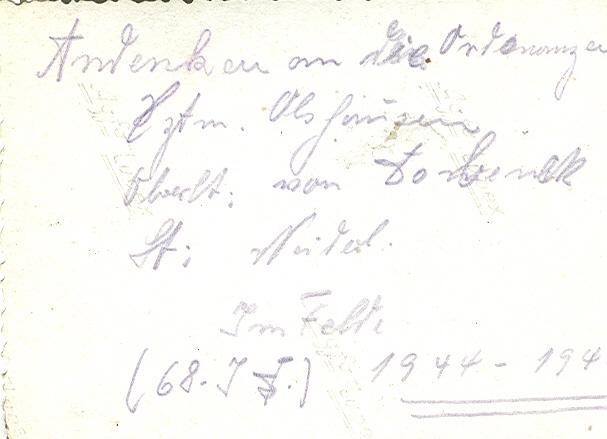 Andenken an die Ordonanzen
Hptm. Olshausen
Oberlt. von
Lt.
Im Felde
(68. I D.) 1944 - 194